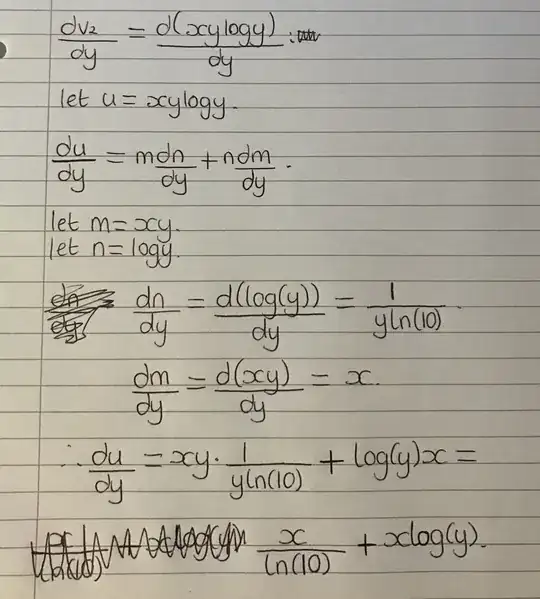 dv₂/dy = d(xylogy)/dy .
let u = xylogy.
du/dy = mdn/dy + ndm/dy .
let m = xy.
let n = logy.
dn/dy = d(log(y))/dy = 1/yln(10) .
dm/dy = d(xy)/dy = x.
∴ du/dy = xy · 1/yln(10) + log(y)x =
x/ln(10) + xlog(y).